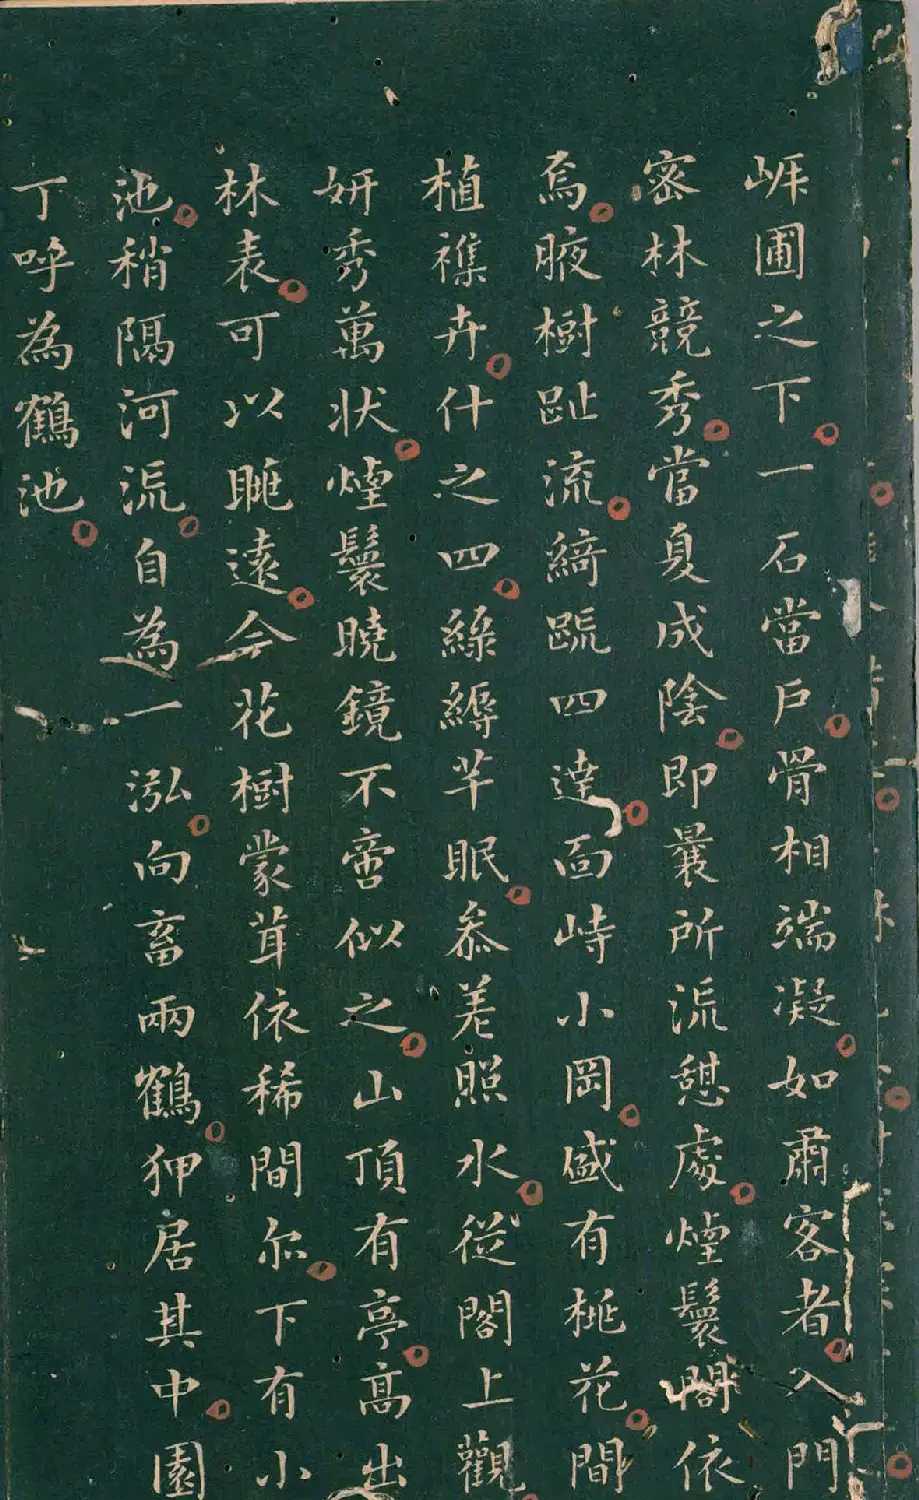 崕圃之下一石當戶骨相端凝如肅客者入門
密林競秀當夏成陰即曩所流憩處煙鬟閣依
焉腋樹趾流綺疏四達面峙小岡盛有桃花間
植襍卉什之四綠縟芊眠叅差照水從閣上觀
妍秀萬狀煙鬟曉鏡不啻似之山頂有亭高出
林表可以眺遠今花樹蒙茸依稀間尓下有小
池稍隔河流自為一泓向畜兩鶴狎居其中園
丁呼為鶴池